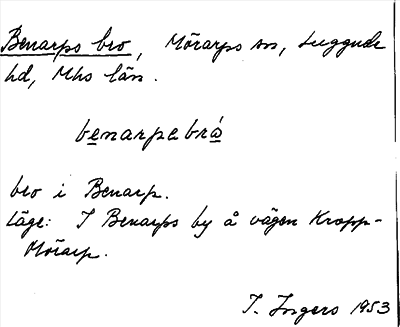 Benarps bro, Mörarps sn, Luggude
hd, Mhs län.
benarpabrá
bro i Benarp.
Läge: I Benarps by å vägen Kropp-
Mörarp.
I. Ingers 1953